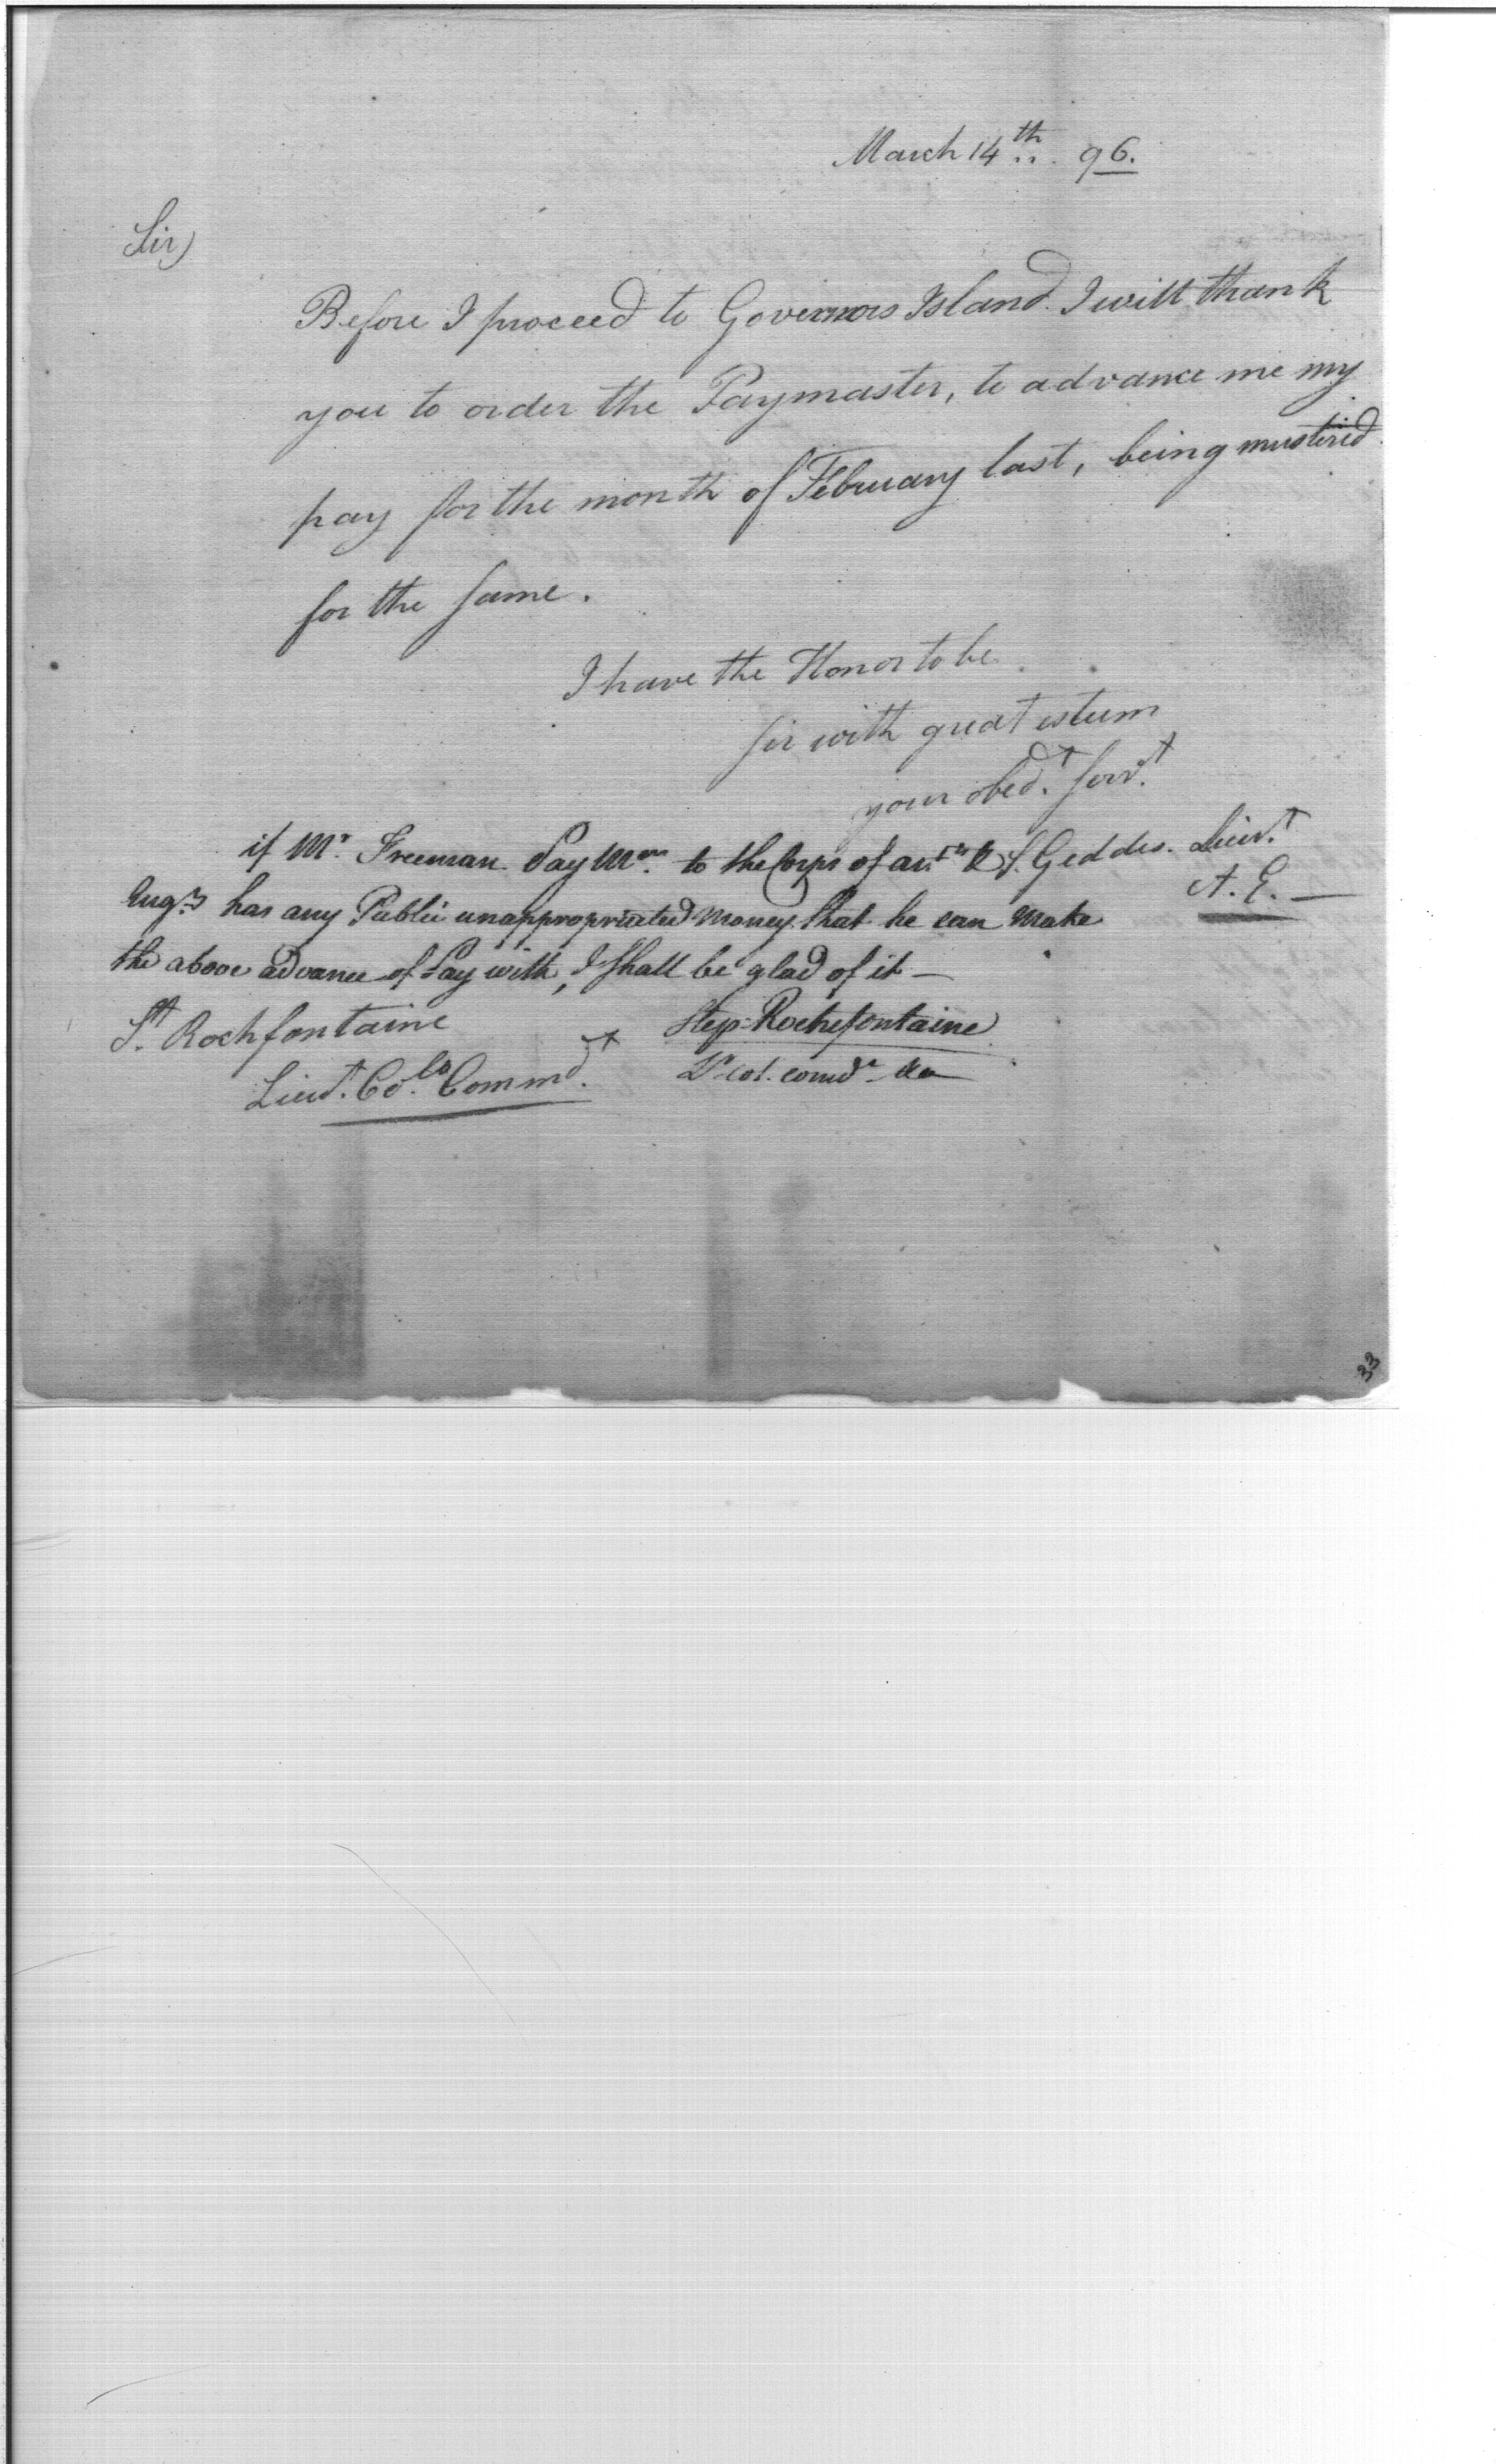 March 14th.. 96.
Sir,
Before I proceed to Governors Island. I will thank
you to order the Paymaster, to advance me my
pay for the month of February last, being mustered
for the same.
I have the Honor to be
sir with great esteem
your obedt. servt.
S. Geddes. Lieut.
A. E. —
if Mr. Freeman Pay Mr. to the Corps of
has any Public unappropriated money that he can make
the above advance of Pay with, I shall be glad of it —
Step. Rochefontaine
Lt col. comdt &a
St. Rochfontaine
Lieut. Colo. Commdt.
33